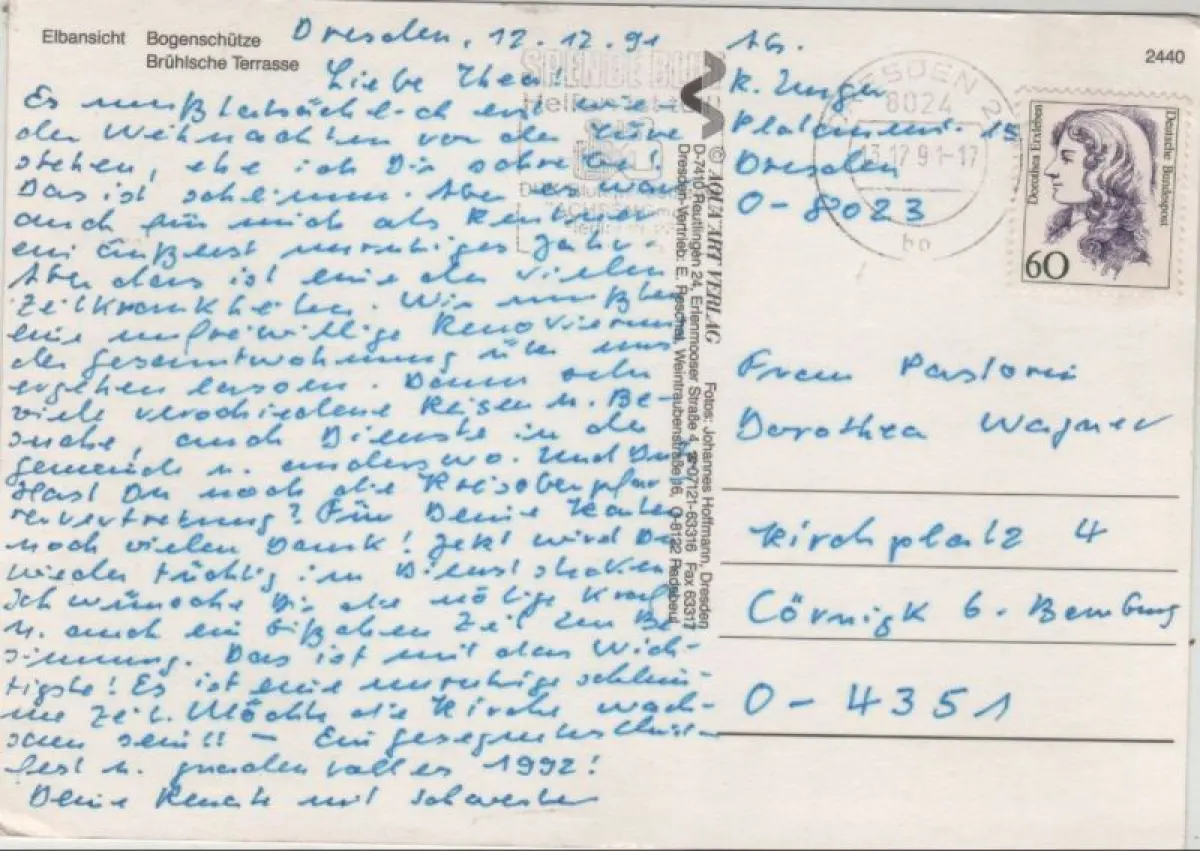 Elbansicht Bogenschütze
Brühlsche Terrasse
2440
Dresden, 12.12.91
Liebe Thea!
Es muß tatsächlich erst wie-
der Weihnachten vor der Türe
stehen, ehe ich Dir schreibe!
Das ist schlimm. Aber es war
auch für mich als Rentner
ein äußerst unruhiges Jahr.
Aber das ist eine der vielen
Zeitkrankheiten. Wir mußten
eine unfreiwillige Renovierung
der Gesamtwohnung über uns
ergehen lassen. Dann sehr
viele verschiedene Reisen u. Be-
suche, auch Dienste in der
Gemeinde u. anderswo. Und Du?
Hast Du noch die Kreisoberpfar-
rervertretung? Für Deine Karten
noch vielen Dank! Jetzt wird Du
wieder tüchtig im Dienst stecken
Ich wünsche Dir die nötige Kraft
u. auch ein bißchen Zeit zur Be-
sinnung. Das ist mit das Wich-
tigste! Es ist eine unruhige schlim-
me Zeit. Möchte die Kirche wach-
sam sein!! – Ein gesegnetes Christ-
fest u. gnadenvolles 1992!
Deine Renate mit Schwester
Ab.
R. Unger
Platanenst. 15
Dresden
O-8023
SPENDE BLUT
DRESDEN 2
8024
13.12.91-17
bo
Dorothea Erxleben
Deutsche Bundespost
60
© AQUA'ART VERLAG
D-7410 Reutlingen 24, Erlenmooser Straße 4, ☎ 07121-63316 Fax 63317
Dresden-Vertrieb: E. Reschel, Weintraubenstraße 16, O-8122 Radebeul
Fotos: Johannes Hoffmann, Dresden
Frau Pastorin
Dorothea Wagner
Kirchplatz 4
Cörnigk b. Bernburg
O-4351